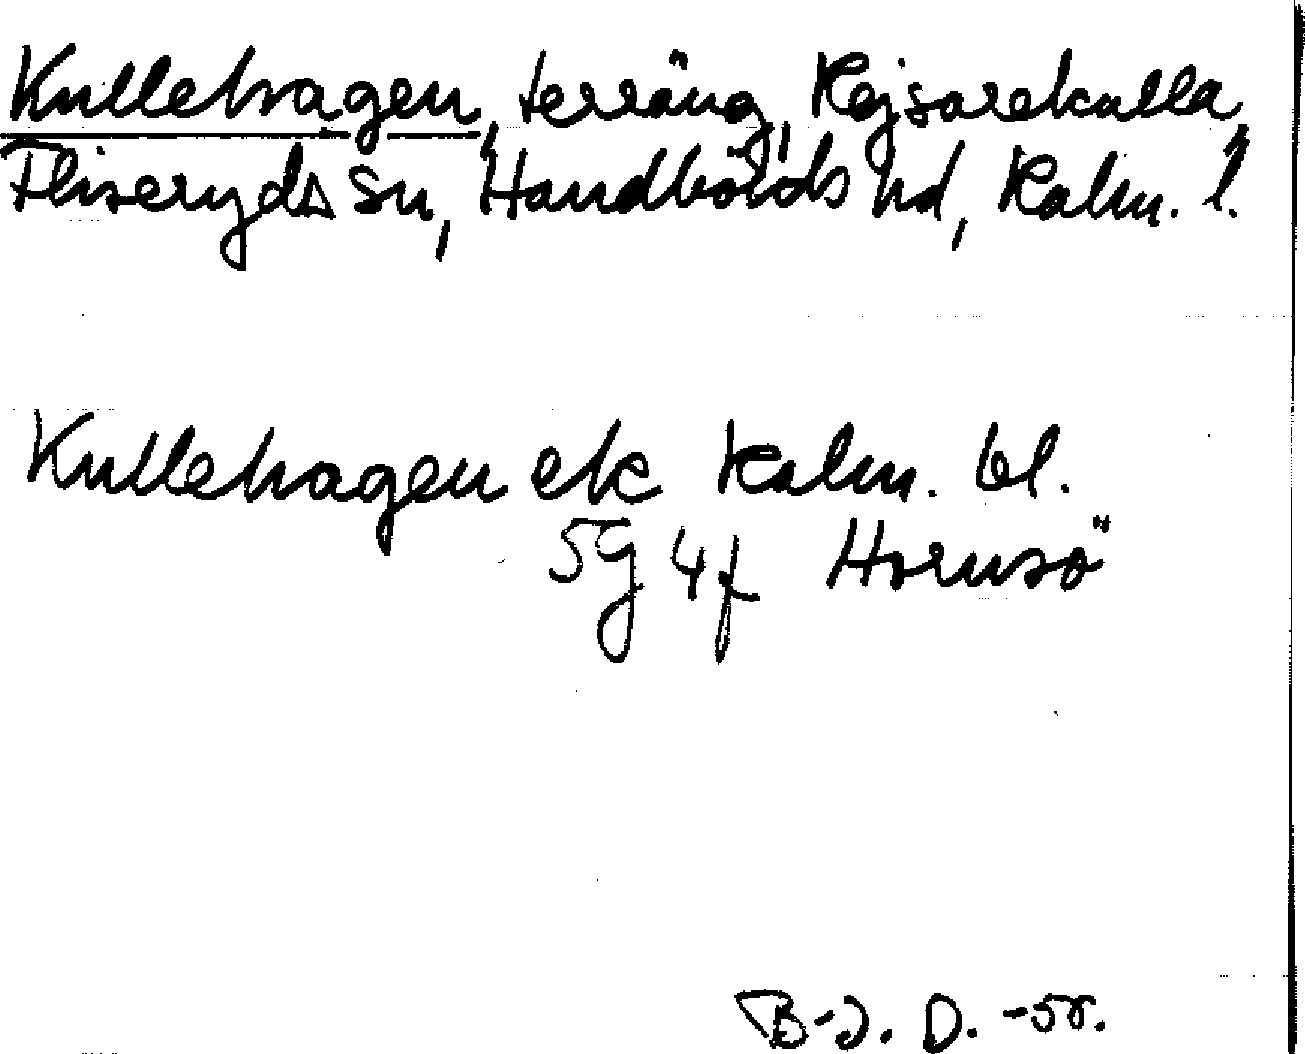 Kullehagen, terräng, Kejsarekulla,
Fliseryds sn, Handbörds hd, Kalm. l.
Kullehagen ek Kalm. bl.
5G 4f Hornsö
B-J. D. -58.